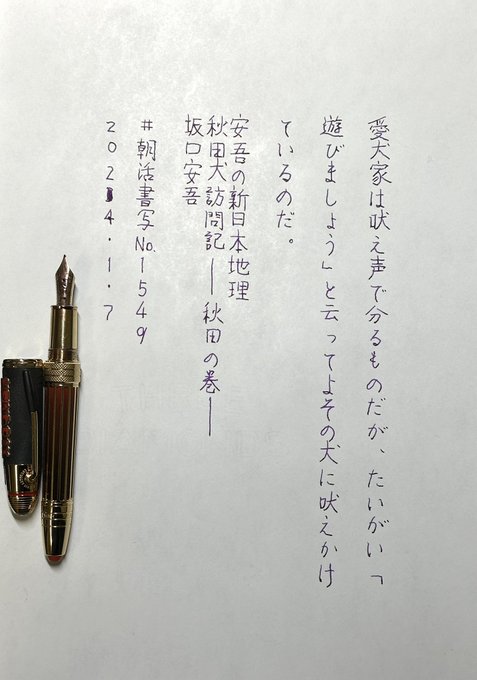 愛犬家は吠え声で分るものだが、たいがい「
遊びましょう」と云ってよその犬に吠えかけ
ているのだ。
安吾の新日本地理
秋田犬訪問記―秋田の巻―
坂口安吾
#朝活書写No.1549
2024.1.7